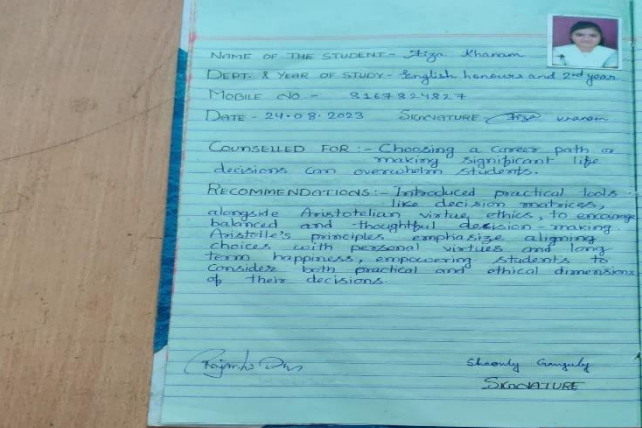 NAME OF THE STUDENT- Aiza Khanam
DEPT. & YEAR OF STUDY- English honours and 2nd year
MOBILE NO.- 8167824827
DATE - 24.08.2023 SIGNATURE - Aiza Khanam
COUNSELLED FOR :- Choosing a career path or
making significant life
decisions can overwhelm students.
RECOMMENDATIONS:- Introduced practical tools
like decision matrices,
alongside Aristotelian virtue ethics, to encourage
balanced and thoughtful decision-making.
Aristotle's principles emphasize aligning
choices with personal virtues and long
term happiness, empowering students to
consider both practical and ethical dimensions
of their decisions.
Shaonly Ganguly
SIGNATURE